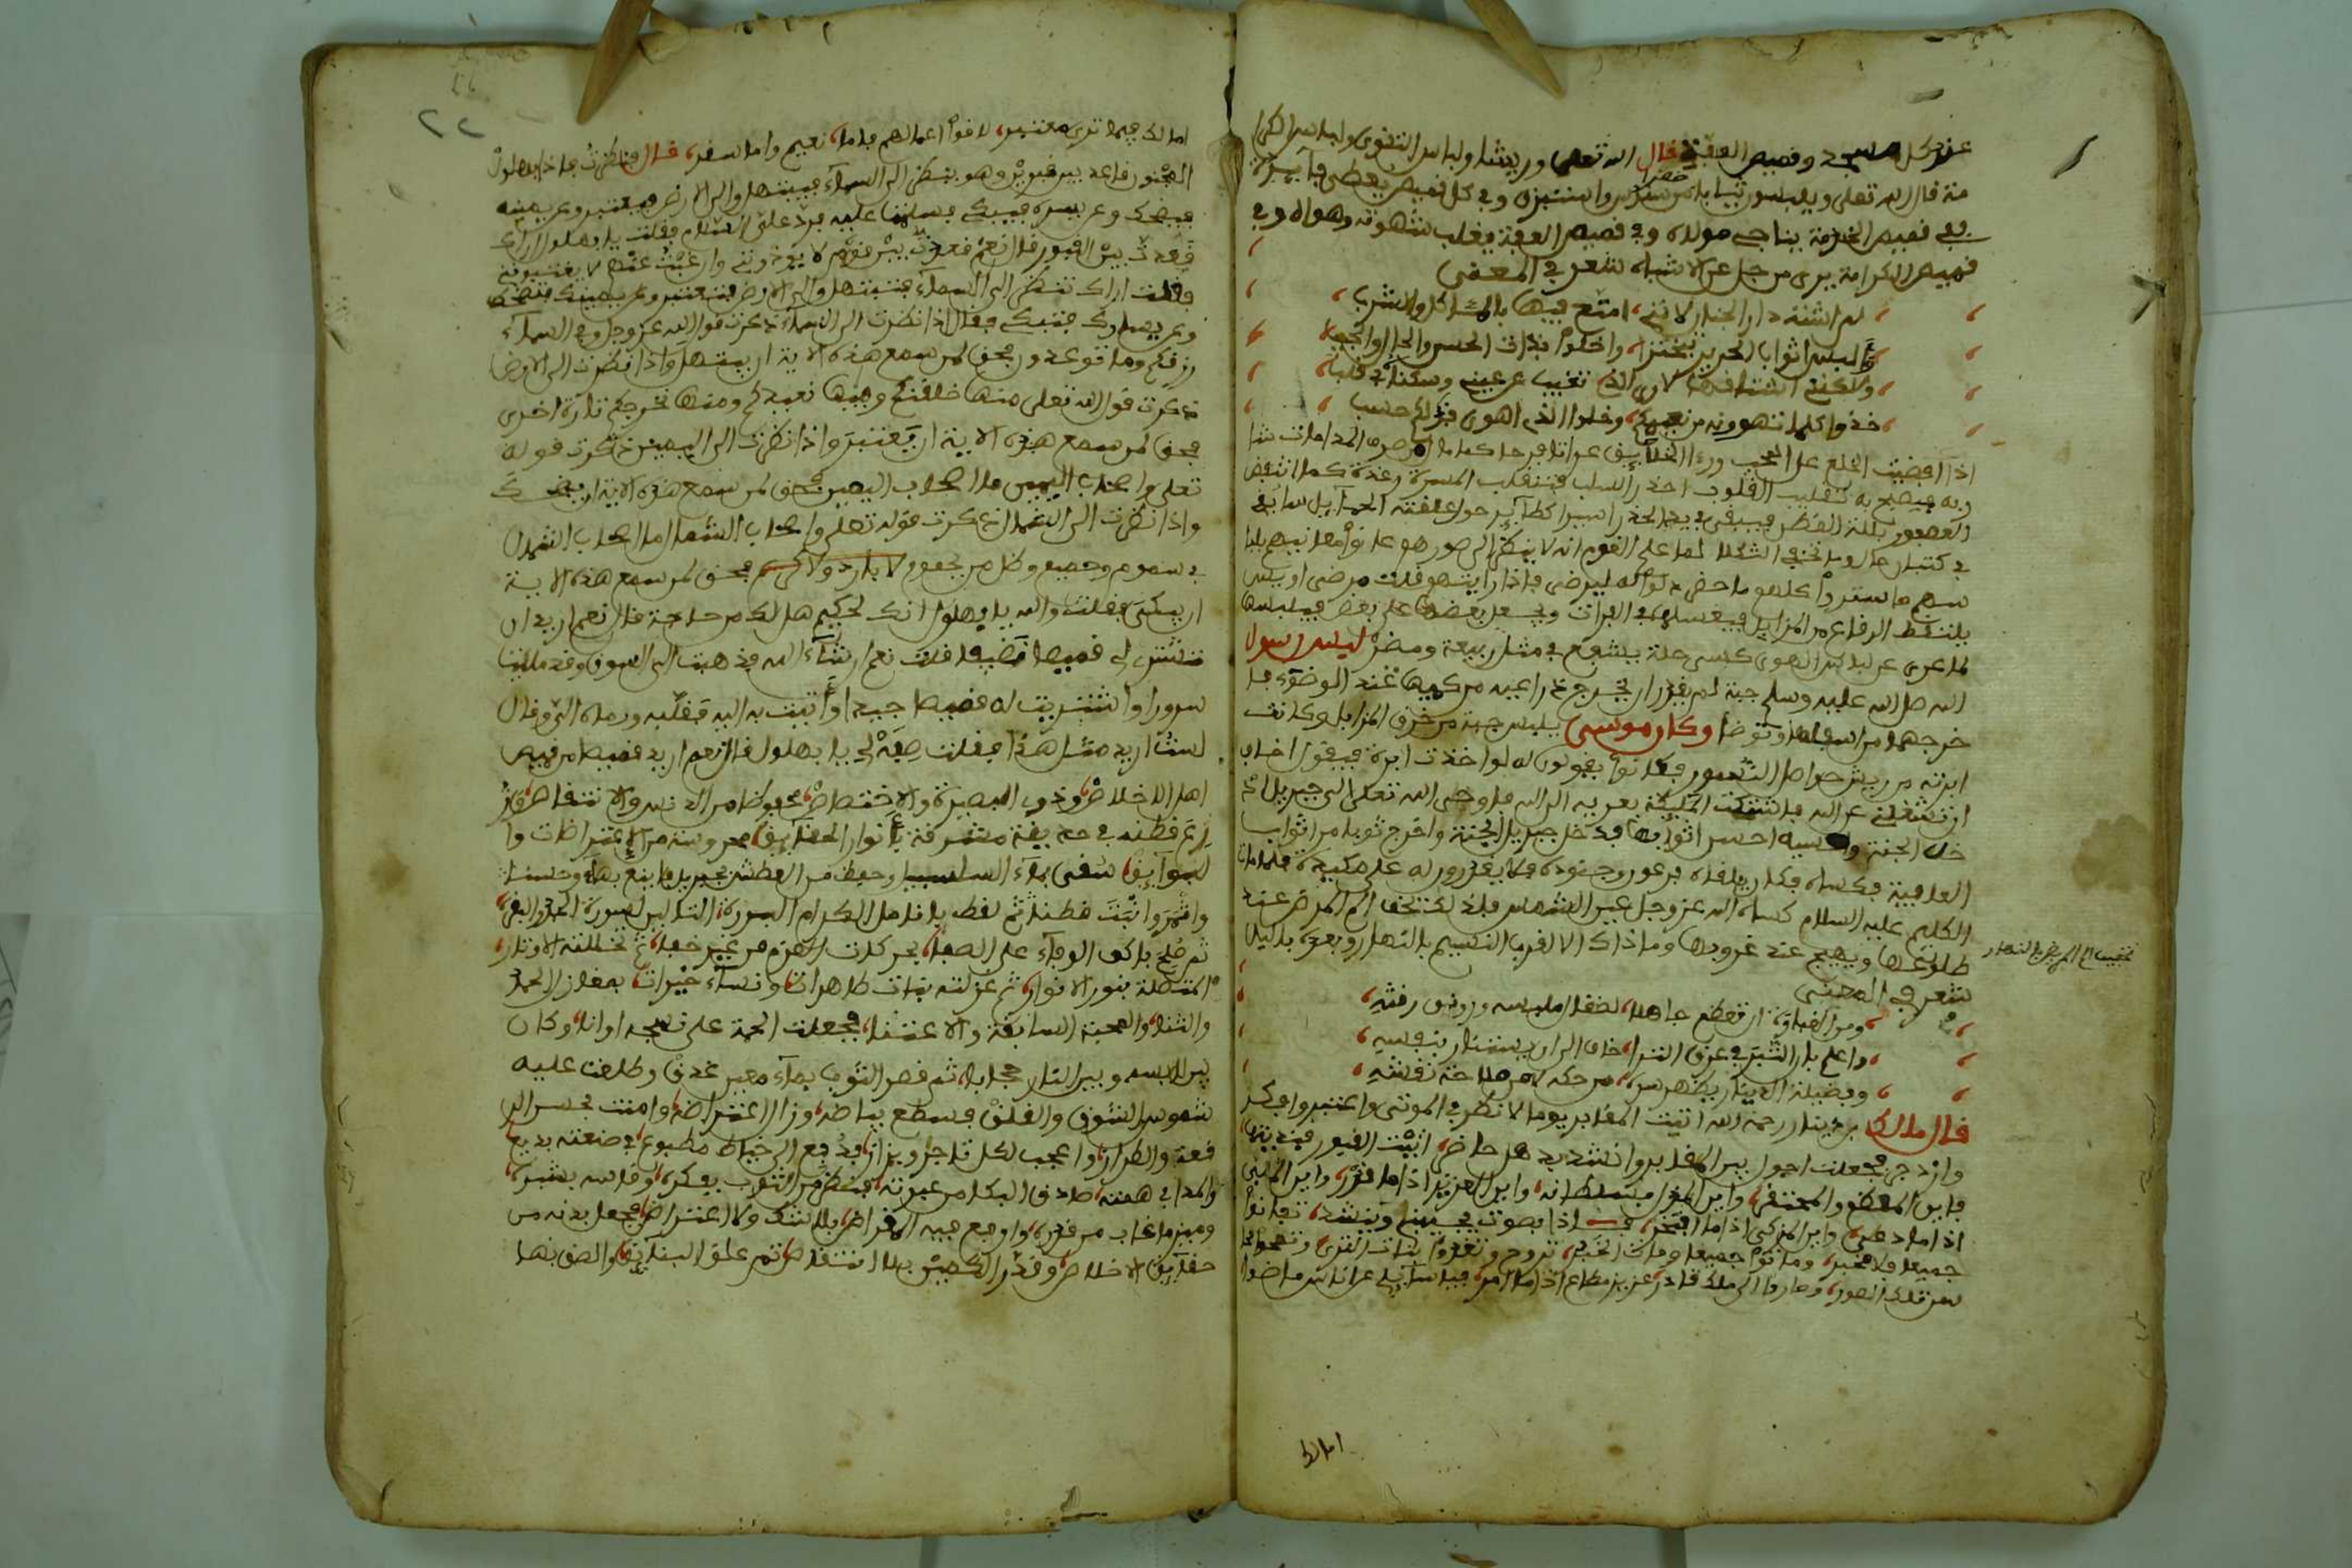 عند كل مسجد وقميص العفة قال الله تعلى وريشا ولباس التقوى ولباس الكرا
مة قال الله تعلى ويلبسون ثيابا خضرا من سندس واستبرق وفي كل قميص يعطى ما يسره
ففي قميص الخدمة يناجي مولاه وفي قميص العفة يغلب شهوته وهواه وفي
قميص الكرامة يرى من جل عن الاشباه شعر في المعنى
لم اشته دار الجنان لانني امتع فيها بالمئاكل والشرب
والبس اثواب الحرير تبخترا واخلوا بذات الحسن والحال والعجب
ولاكنني اشتاقها لارى الذي تغيب عن عيني وسكناه في قلب
خذوا كلما تهوونه من نعيمكم وخلوا الذي اهوى فذلكم حسب
اذا افضيت الخلع على المحب ورءا الخلائق عراة
وبه فيصيح به تقليب القلوب احذر السلب فتنقلب المسرة رعدة كما انتفض
العصفور بلله القطر فيبقى في يد الحذر اسيرا كطائر
يلتقط الرقاع من المزابل فيغسلها في الفرات ويجعل بعضها على بعض فيلبسها
لما عرى عن لباس الهوى كسي حلة يشفع في مثل ربيعة ومضر لبس رسول
الله صلى الله عليه وسلم جبة لم يقدر ان يخرج ذراعيه من كميها عند الوضوء فا
خرجهما من اسفلها وتوضا وكان موسى يلبس جبة من خرق المزابل وكانت
ابرته من ريش حواصل النسور فكانوا يقولون له لو اخذت ابرة فيقول اخاف
ان تشغلني عن الله فاشتكت الملئكة بعريه الى الله فاوحى الله تعلى الى جبريل اد
خل الجنة واكسيه احسن اثوابها فدخل جبريل الجنة واخرج ثوبا من اثواب
العافية فكساه فكان يلقاه فرعون وجنوده فلا يقدرون له على مكيدة فلما مات
الكليم عليه السلام كساه الله عز وجل عين الشمس
طلوعها ويهيج عند غروبها وما ذاك الا لقرب النسيم بالنهار وبعده باليل
شعر في المعنى
ومن الغباوة ان تعظم جاهلا لصقال ملبسه ورونق رقشه
واعلم بان التبر في عرق الثرا خاف الى ان يستنار بنبشه
وفضيلة الدينار يظهر سرها من حكه لا من ملاحة نقشه
قال مالك بن دينار رحمه الله اتيت المقابر يوما لانظر في الموتى واعتبر وافكر
وازدجر فجعلت اجول بين المقابر وانشد يد هل حاضر اتيت القبور فناديتها
فاين المعظم والمحتقر واين المدل بسلطانه واين العزيز اذا ما قدر واين الملبي
اذا ما دعى واين المزكى اذا ما افتخر فاذا بصوت يجيبني وينشد تفانوا
جميعا فلا مخبر وماتوا جميعا ومات الخبر تروح وتغدوا بنات الثرى وتمحوا محا
سن تلك الصور وصاروا الى ملك قادر عزيز مطاع اذا ما امر فيا سائلي عن اناس مضوا
اما لك
اما لك فيما ترى معتبر لاقوا اعمالهم فاما نعيم واما سقر قال فنظرت فاذا ببهلول
المجنون قاعد بين قبرين وهو ينظر الى السماء فيبتهل والى الارض فيعتبر وعن يمينه
فيضحك وعن يسره فيبكي فسلمت عليه فرد علي السلام فقلت يا بهلول اراك
قعدت بين القبور قال نعم قعدت بين قوم لا يوذونني وان غبت عنهم لا يغتبونني
فقلت اراك تنظر الى السماء فتبتهل والى الارض فتعتبر وعن يمينك فتضحك
وعن يسارك فتبكي فقال اذا نظرت الى السماء ذكرت قول الله عز وجل وفي السماء
رزقكم وما توعدون فحق لمن سمع هذه الاية ان يبتهل واذا نظرت الى الارض
ذكرت قول الله تعلى منها خلقنكم وفيها نعيدكم ومنها نخرجكم تارة اخرى
فحق لمن سمع هذه الاية ان يعتبر واذا نظرت الى اليمين ذكرت قوله
تعلى واصحاب اليمين ما اصحاب اليمين فحق لمن سمع هذه الاية ان يضحك
واذا نظرت الى الشمال ذكرت قوله تعلى واصحاب الشمال ما اصحاب الشمال
في سموم وحميم وظل من يحموم لا بارد ولا كريم فحق لمن سمع هذه الاية
ان يبكي فقلت والله يا بهلول انك لحكيم هل لك من حاجة قال نعم اريد ان
تشتري لي قميصا نظيفا قلت نعم ان شاء الله فذهبت الى السوق وقد ملئت
سرورا واشتريت له قميصا جيدا وأتيت به اليه فقلبه ورماه الي وقال
لست اريد مثل هذا فقلت صفه لي يا بهلول قال نعم اريد قميصا من قميص
اهل الاخلاص وذوي البصيرة والاختصاص محفوظا من الدنس والانتقاص قد
زرع قطنه في حديقة مشرقة بأنوار الحقايق محروسة من الاعتراضات وا
لبوايق سقي بماء السلسبيل وحفظه من العطش جبريل فاينع بهاء وحسنا
واثمر وانبت قطنا ثم لقط بانامل الكرام البررة
ثم حلج باكف الوفاء على الصفا
المتصلة بنور الانوار ثم غزلته بنات طاهرات ونساء خيرات بمغازل الحمد
والثنا والمحبة السابقة والاعتنا فجعلت الجنة على نسجه اوانا وكان
بين لابسه وبين النار حجابا ثم قصر الثوب بماء معين غدق وطلعت عليه
شموس الشوق والقلق فسطع بياضه وزال اعتراضه وامنت
قعة والطراز واعجب لكل تاجر وبزاز فدفع الى خياط مطبوع في صنعته بديع
والمدا في همته صادق البكا من عبرته فنظر في الثوب بفكره وقاسه بشبره
وميز ما غاب من قدره واوقع فيه المقراض بلا شك ولا اعتراض فجعل بدنه من
حقايق الاخلاص وقدر الكمين بلا انتقاص ثم علق البنايق والصق بها
٢٢